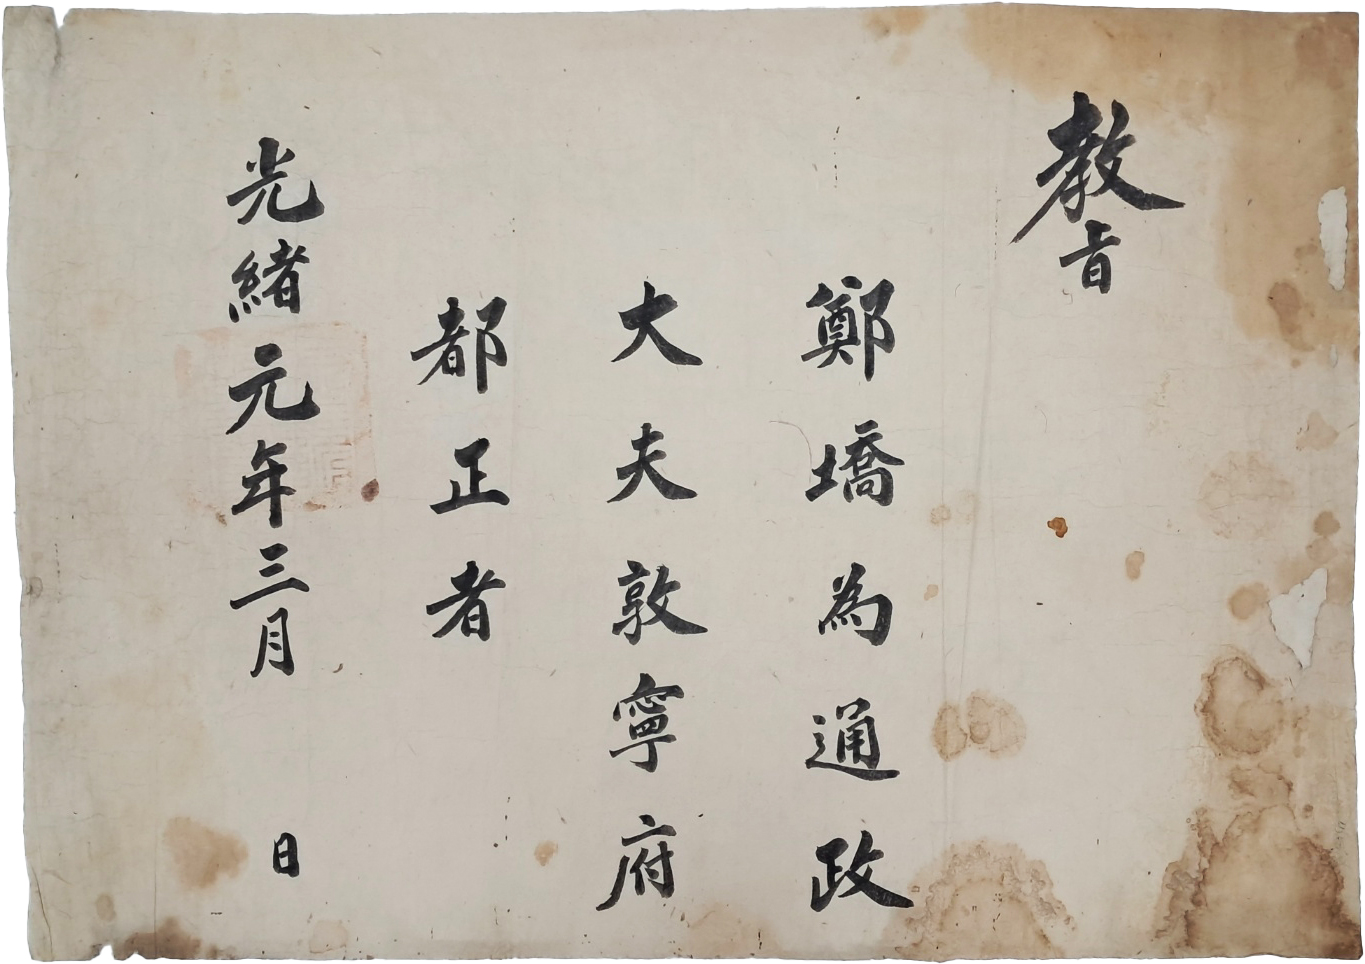 教旨
鄭墧為通政
大夫敦寧府
都正者
光緒元年三月 日